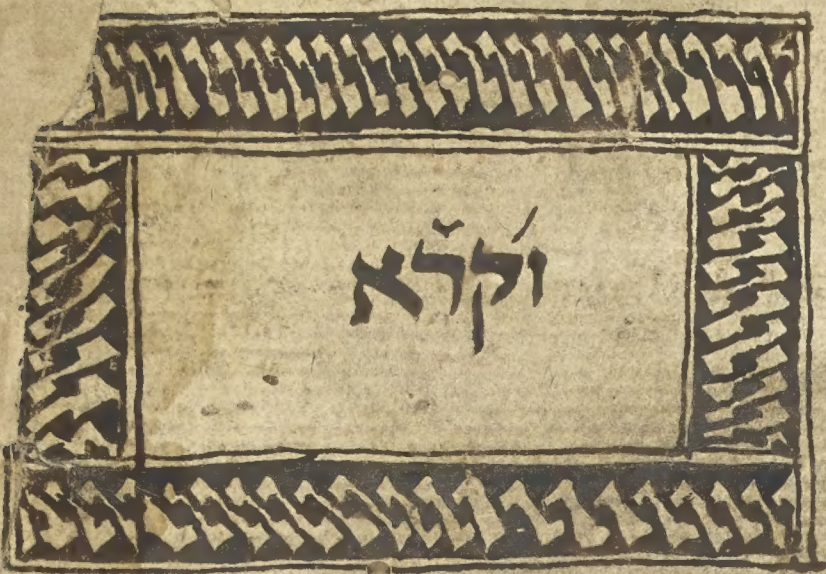 וקרא